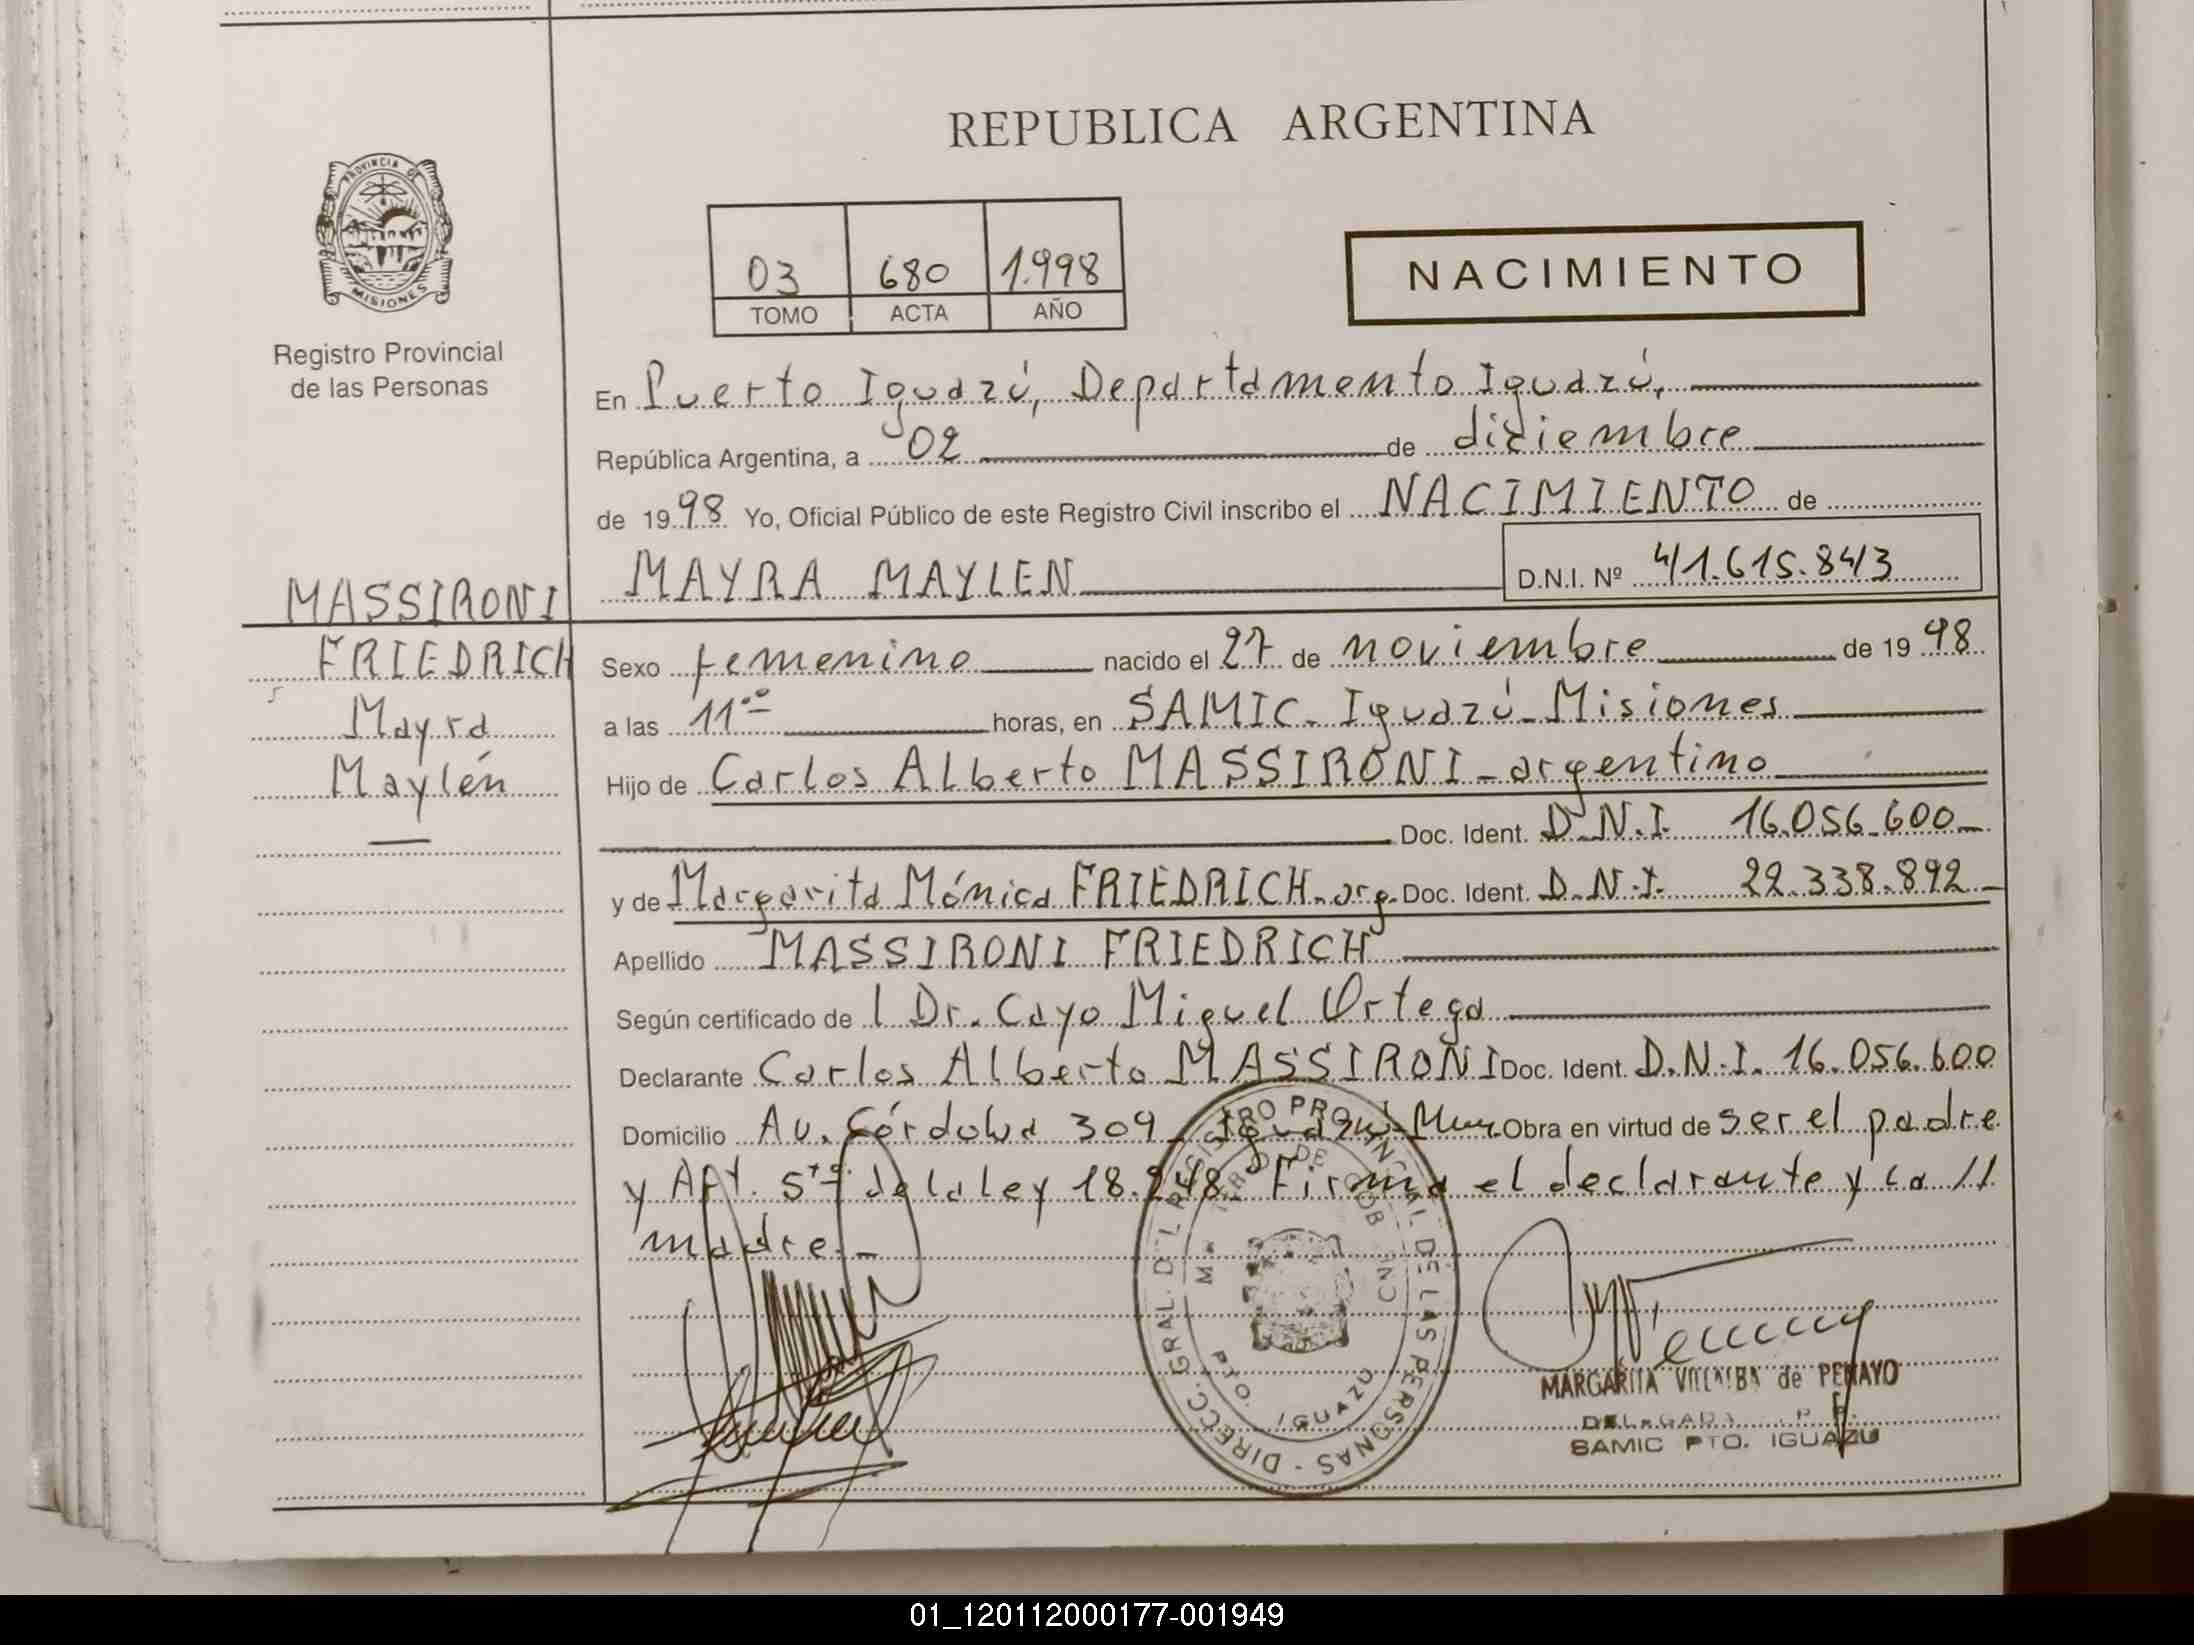 REPUBLICA ARGENTINA
PROVINCIA DE
MISIONES
Registro Provincial
de las Personas
03 680 1.998
TOMO ACTA AÑO
NACIMIENTO
En Puerto Iguazú, Departamento Iguazú,
República Argentina, a 02 de diciembre
de 1998 Yo, Oficial Público de este Registro Civil inscribo el NACIMIENTO de
MAYRA MAYLEN D.N.I. Nº 41.615.843
MASSIRONI
FRIEDRICH
Mayra
Maylén
Sexo femenino nacido el 27 de noviembre de 1998
a las 11 horas, en SAMIC- Iguazú- Misiones
Hijo de Carlos Alberto MASSIRONI- argentino
Doc. Ident. D.N.I. 16.056.600-
y de Margarita Mónica FRIEDRICH- arg. Doc. Ident. D.N.I. 22.338.892-
Apellido MASSIRONI FRIEDRICH
Según certificado de l Dr. Cayo Miguel Ortega
Declarante Carlos Alberto MASSIRONI Doc. Ident. D.N.I. 16.056.600
Domicilio Av. Córdoba 309- Iguazú- Obra en virtud de ser el padre
y Art. 5to de la ley 18.248- Firma el declarante y la //
madre.-
DIRECC. GRAL. DEL REGISTRO PROVINCIAL DE LAS PERSONAS
PTO. IGUAZU
MARGARITA VILLALBA de PENAYO
DELEGADA
SAMIC PTO. IGUAZU
01_120112000177-001949